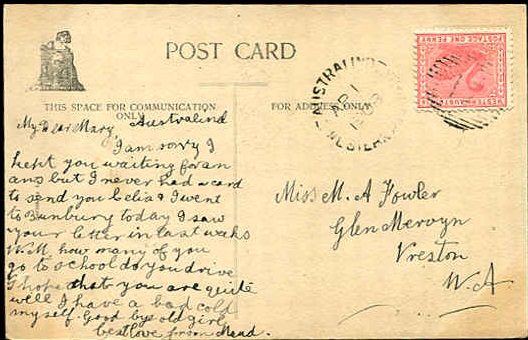 POST CARD
THIS SPACE FOR COMMUNICATION
ONLY
Australind
My Dear Mary,
I am sorry I
kept you waiting for an
ans but I never had a card
to send you Celia & I went
to Bunbury today I saw
your letter in last weeks
W.M. how many of you
go to school do you drive
I hope that you are quite
well I have a bad cold
myself. Good bye old girl
best love from
FOR ADDRESS ONLY.
AUSTRALIND
AP 1
WESTERN
POSTAGE ONE PENNY
Miss M. A Fowler
Glen Mervyn
Preston
W. A